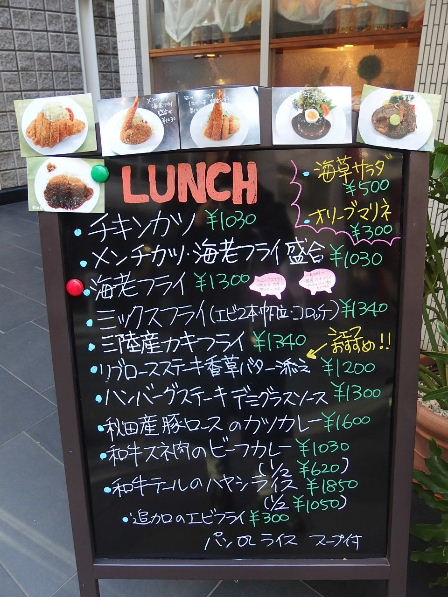 LUNCH
海草サラダ
¥500
オリーブマリネ
¥300
チキンカツ ¥1030
メンチカツ・海老フライ盛合 ¥1030
海老フライ ¥1300
ミックスフライ(エビ2本・帆立・コロッケ) ¥1340
三陸産カキフライ ¥1340
シェフ
おすすめ!!
リブロースステーキ香草バター添え ¥1200
ハンバーグステーキデミグラスソース ¥1300
秋田産豚ロースのカツカレー ¥1600
和牛スネ肉のビーフカレー ¥1030
(1/2 ¥620)
和牛テールのハヤシライス ¥1850
(1/2 ¥1050)
追加のエビフライ ¥300
パン or ライス スープ付